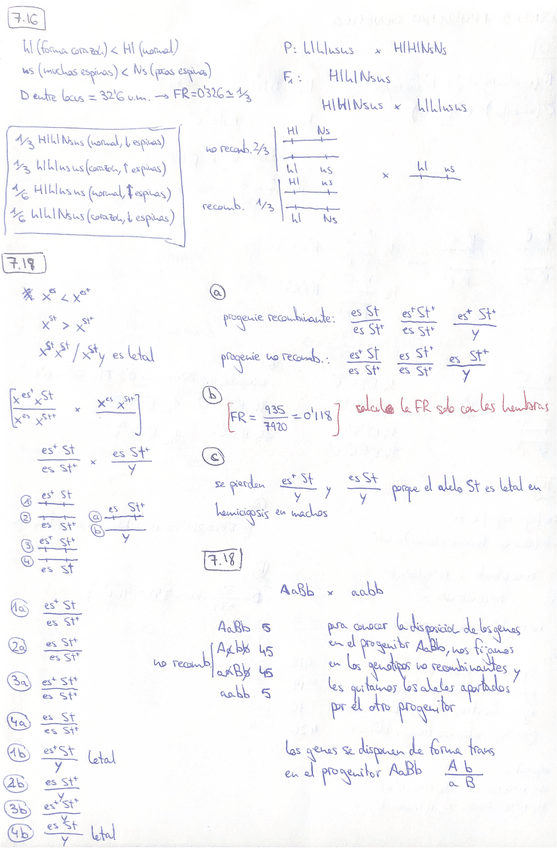 7.16
hl (forma corazón) < Hl (normal)
ns (muchas espinas) < Ns (pocas espinas)
D entre locus = 32'6 u.m. → FR=0'326 ≃ 1/3
P: hlhlnsns x HlHlNsNs
F1: HlhlNsns
HlhlNsns x hlhlnsns
1/3 HlhlNsns (normal, ↓ espinas)
1/3 hlhlnsns (corazón, ↑ espinas)
1/6 Hlhlnsns (normal, ↑ espinas)
1/6 hlhlNsns (corazón, ↓ espinas)
no recomb. 2/3
Hl Ns
hl ns
x hl ns
recomb. 1/3
Hl ns
hl Ns
7.18
X^es < X^es+
X^St > X^St+
X^St X^St / X^St y es letal
X^es+ X^St
X^es X^St+
x X^es X^St+
es+ St
es St+
x es St+
y
① es+ St
② es St+
③ es+ St+
④ es St
ⓐ es St+
ⓑ y
1a es+ St
es St+
2a es St+
es St+
3a es+ St+
es St+
4a es St
es St+
1b es+ St letal
y
2b es St+
y
3b es+ St+
y
4b es St letal
y
ⓐ
progenie recombinante: es St es+ St+ es+ St+
es St+ es St+ y
progenie no recomb.: es+ St es St+ es St+
es St+ es St+ y
ⓑ
FR = 935/7920 = 0'118 calcular la FR solo con las hembras
ⓒ
se pierden es+ St / y y es St / y porque el alelo St es letal en
hemicigosis en machos
7.18
AaBb x aabb
AaBb 5
no recomb. Aabb 45
aaBb 45
aabb 5
para conocer la disposición de los genes
en el progenitor AaBb, nos fijamos
en los genotipos no recombinantes y
les quitamos los alelos aportados
por el otro progenitor
los genes se disponen de forma trans
en el progenitor AaBb A b
a B